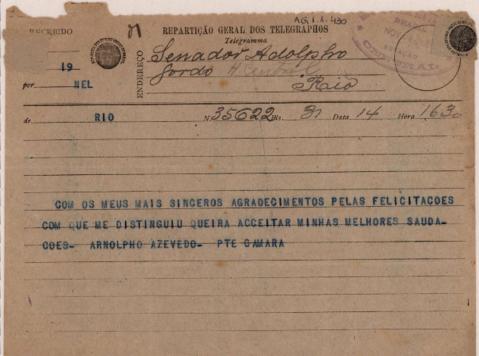 AG.1.1.430
RECEBIDO
REPARTIÇÃO GERAL DOS TELEGRAPHOS
Telegramma
ENDEREÇO
Senador Adolpho
Gordo
19
por NEL
de RIO Nº 35622 Rs. 31 Data 14 Hora 1630
COM OS MEUS MAIS SINCEROS AGRADECIMENTOS PELAS FELICITACOES
COM QUE ME DISTINGUIU QUEIRA ACCEITAR MINHAS MELHORES SAUDA-
COES- ARNOLPHO AZEVEDO- PTE CAMARA